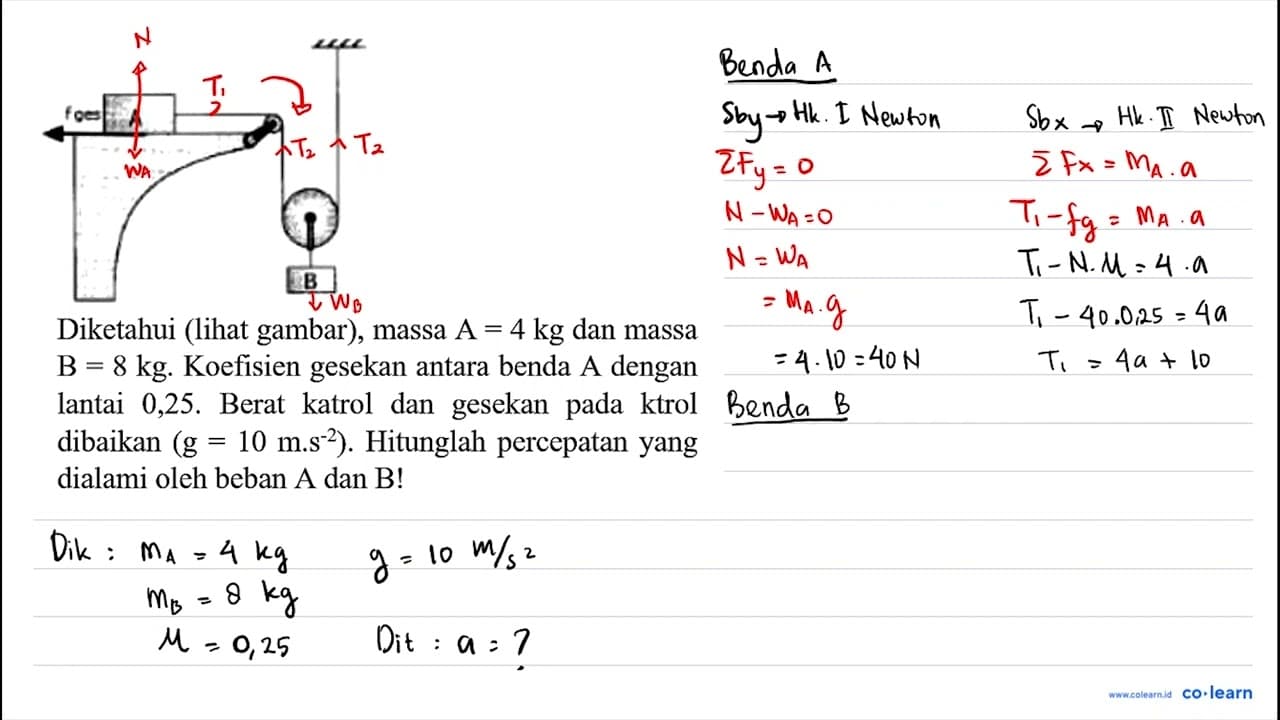 N
T₁
f ges
A
T₂
T₂
WA
B
WB
Diketahui (lihat gambar), massa A = 4 kg dan massa
B = 8 kg. Koefisien gesekan antara benda A dengan
lantai 0,25. Berat katrol dan gesekan pada ktrol
dibaikan (g = 10 m.s⁻²). Hitunglah percepatan yang
dialami oleh beban A dan B!
Dik : mA = 4 kg
g = 10 m/s²
mB = 8 kg
M = 0,25
Dit : a = ?
Benda A
Sby → Hk. I Newton
ΣFy = 0
N - WA = 0
N = WA
= MA . g
= 4 . 10 = 40 N
Sbx → Hk. II Newton
Σ Fx = MA . a
T₁ - fg = MA . a
T₁ - N. M = 4 . a
T₁ - 40.0,25 = 4a
T₁ = 4a + 10
Benda B
www.colearn.id co·learn